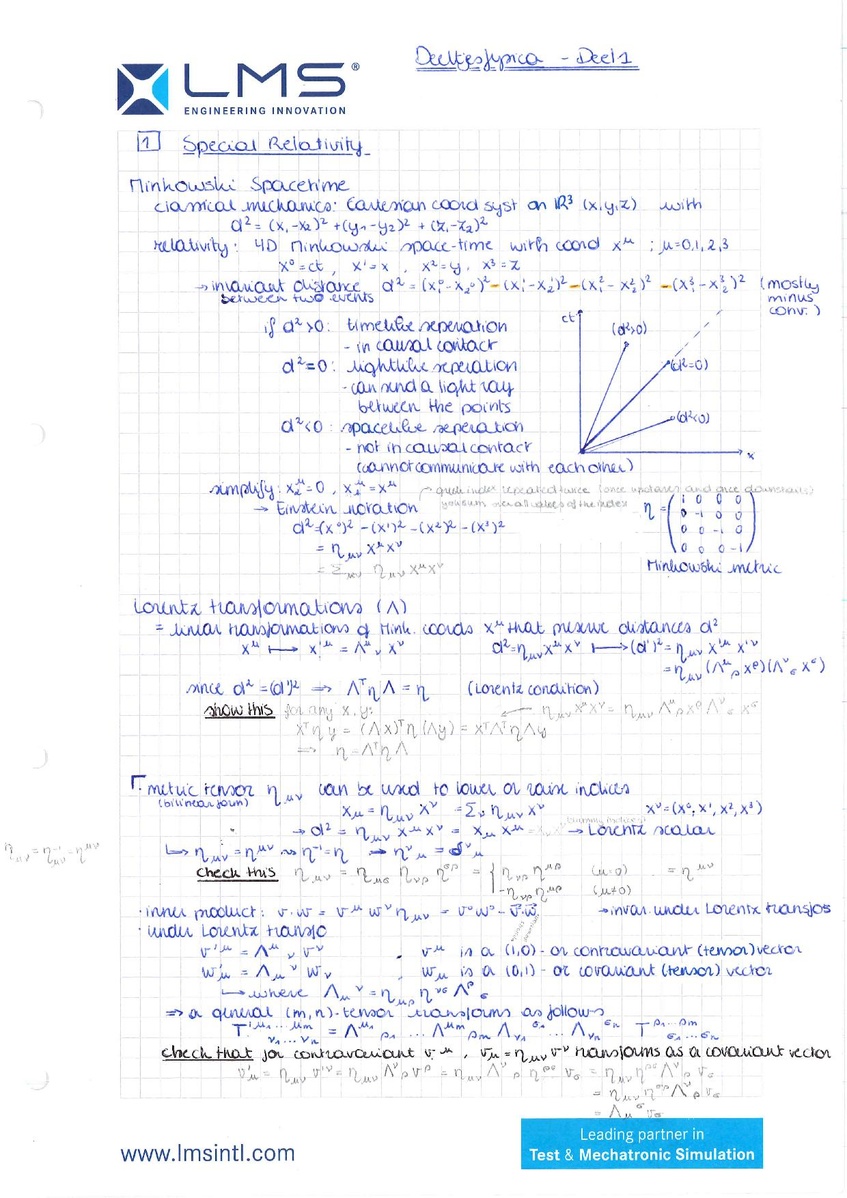 Deeltjesfysica - Deel 1
LMS®
ENGINEERING INNOVATION
1 Special Relativity
Minkowski Spacetime
classical mechanics: Cartesian coord syst on ℝ³ (x,y,z) with
d² = (x₁-x₂)² + (y₁-y₂)² + (z₁-z₂)²
relativity: 4D Minkowski space-time with coord x^μ ; μ=0,1,2,3
x⁰=ct , x¹=x , x²=y , x³=z
→ invariant distance d² = (x₁⁰-x₂⁰)² - (x₁¹-x₂¹)² - (x₁²-x₂²)² - (x₁³-x₂³)² (mostly
between two events minus
conv.)
if d²>0: timelike seperation
- in causal contact
d²=0: lightlike seperation
- can send a light ray
between the points
d²<0: spacelike seperation
- not in causal contact
(cannot communicate with each other)
ct
(d²>0)
(d²=0)
(d²<0)
x
simplify: x₂^μ=0 , x₁^μ=x^μ
index repeated twice (once upstairs and once downstairs)
→ Einstein notation
d²=(x⁰)² - (x¹)² - (x²)² - (x³)²
= η_μν x^μ x^ν
= Σ_μν η_μν x^μ x^ν
η = (1 0 0 0
0 -1 0 0
0 0 -1 0
0 0 0 -1)
Minkowski metric
Lorentz transformations (Λ)
= linear transformations of Mink. coords x^μ that preserve distances d²
x^μ ⟼ x'^μ = Λ^μ_ν x^ν d²=η_μν x^μ x^ν ⟼ (d')² = η_μν x'^μ x'^ν
= η_μν (Λ^μ_ρ x^ρ)(Λ^ν_σ x^σ)
since d² = (d')² ⟹ Λ^T η Λ = η (Lorentz condition)
show this for any x,y: ← η_μν x^μ x^ν = η_μν Λ^μ_ρ x^ρ Λ^ν_σ x^σ
x^T η y = (Λx)^T η (Λy) = x^T Λ^T η Λ y
⟹ η = Λ^T η Λ
metric tensor η_μν can be used to lower or raise indices
(bilinear form)
x_μ = η_μν x^ν = Σ_ν η_μν x^ν x^ν = (x⁰, x¹, x², x³)
→ d² = η_μν x^μ x^ν = x_μ x^μ → Lorentz scalar
↳ η_μν = η^μν ⇝ η⁻¹ = η → η^ν_μ = δ^ν_μ
η_μν = η⁻¹_μν = η^μν
check this η_μν = η_μσ η_νρ η^σρ = { η_νρ η^μρ (μ=0) = η^μν
-η_νρ η^μρ (μ≠0)
· inner product: v·w = v^μ w^ν η_μν = v⁰w⁰ - v⃗·w⃗ → invar. under Lorentz transfos
· under Lorentz transfo
v'^μ = Λ^μ_ν v^ν , v^μ is a (1,0) - or contravariant (tensor) vector
w'_μ = Λ_μ^ν w_ν , w_μ is a (0,1) - or covariant (tensor) vector
↳ where Λ_μ^ν = η_μρ η^νσ Λ^ρ_σ
⟹ a general (m,n)-tensor transforms as follows
T'^μ₁...μₘ_ν₁...νₙ = Λ^μ₁_ρ₁ ... Λ^μₘ_ρₘ Λ_ν₁^σ₁ ... Λ_νₙ^σₙ T^ρ₁...ρₘ_σ₁...σₙ
check that for contravariant v^μ , v_μ = η_μν v^ν transforms as a covariant vector
v'_μ = η_μν v'^ν = η_μν Λ^ν_ρ v^ρ = η_μν Λ^ν_ρ η^ρσ v_σ = η_μν η^ρσ Λ^ν_ρ v_σ
= η_μν η^σρ Λ^ν_ρ v_σ
= Λ_μ^σ v_σ
www.lmsintl.com
Leading partner in
Test & Mechatronic Simulation